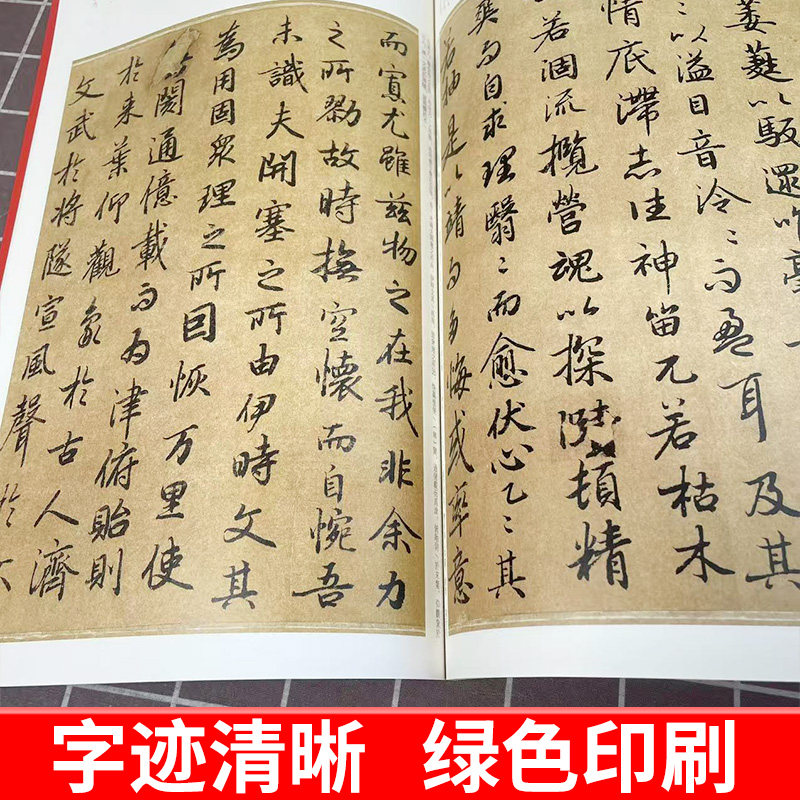 萎蕤以馺遝唯毫
以溢目音泠〻而盈耳及其
情底滯志往神留兀若枯木
若涸流攬營魂以探賾頓精
爽而自求理翳〻而愈伏心乙〻其
若抽是以靖而多悔或率意
而寡尤雖茲物之在我非余力
之所勠故時撫空懷而自惋吾
未識夫開塞之所由伊時文其
為用固眾理之所因恢万里使
閡通億載而為津俯貽則
於来葉仰觀象於古人濟
文武於將隧宣風聲於不
字迹清晰 绿色印刷